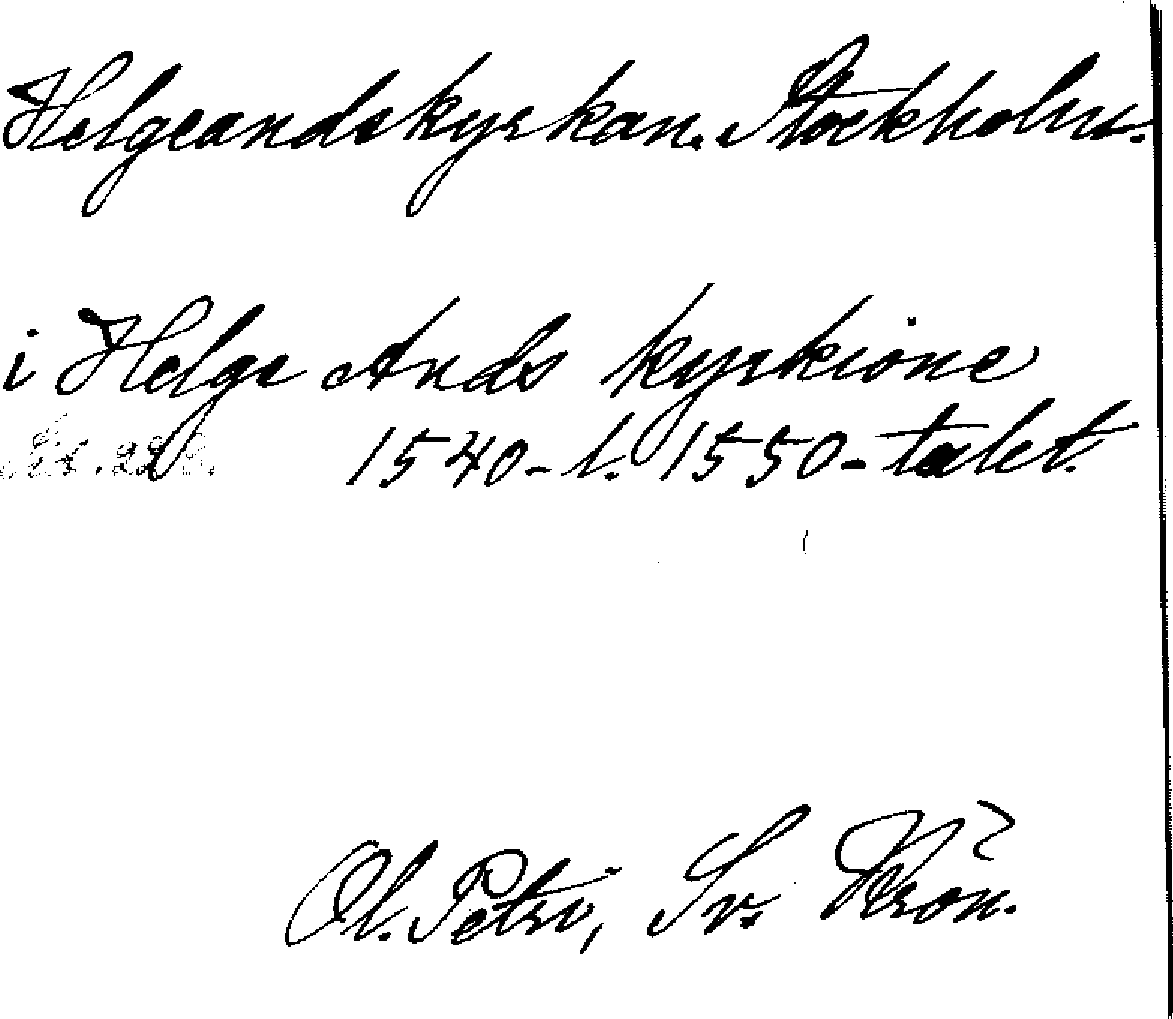 Helgeandskyrkan. Stockholm.
i Helge Ands kyrkione
1540-l. 1550-talet.
Ol. Petri, Sv. Krön.